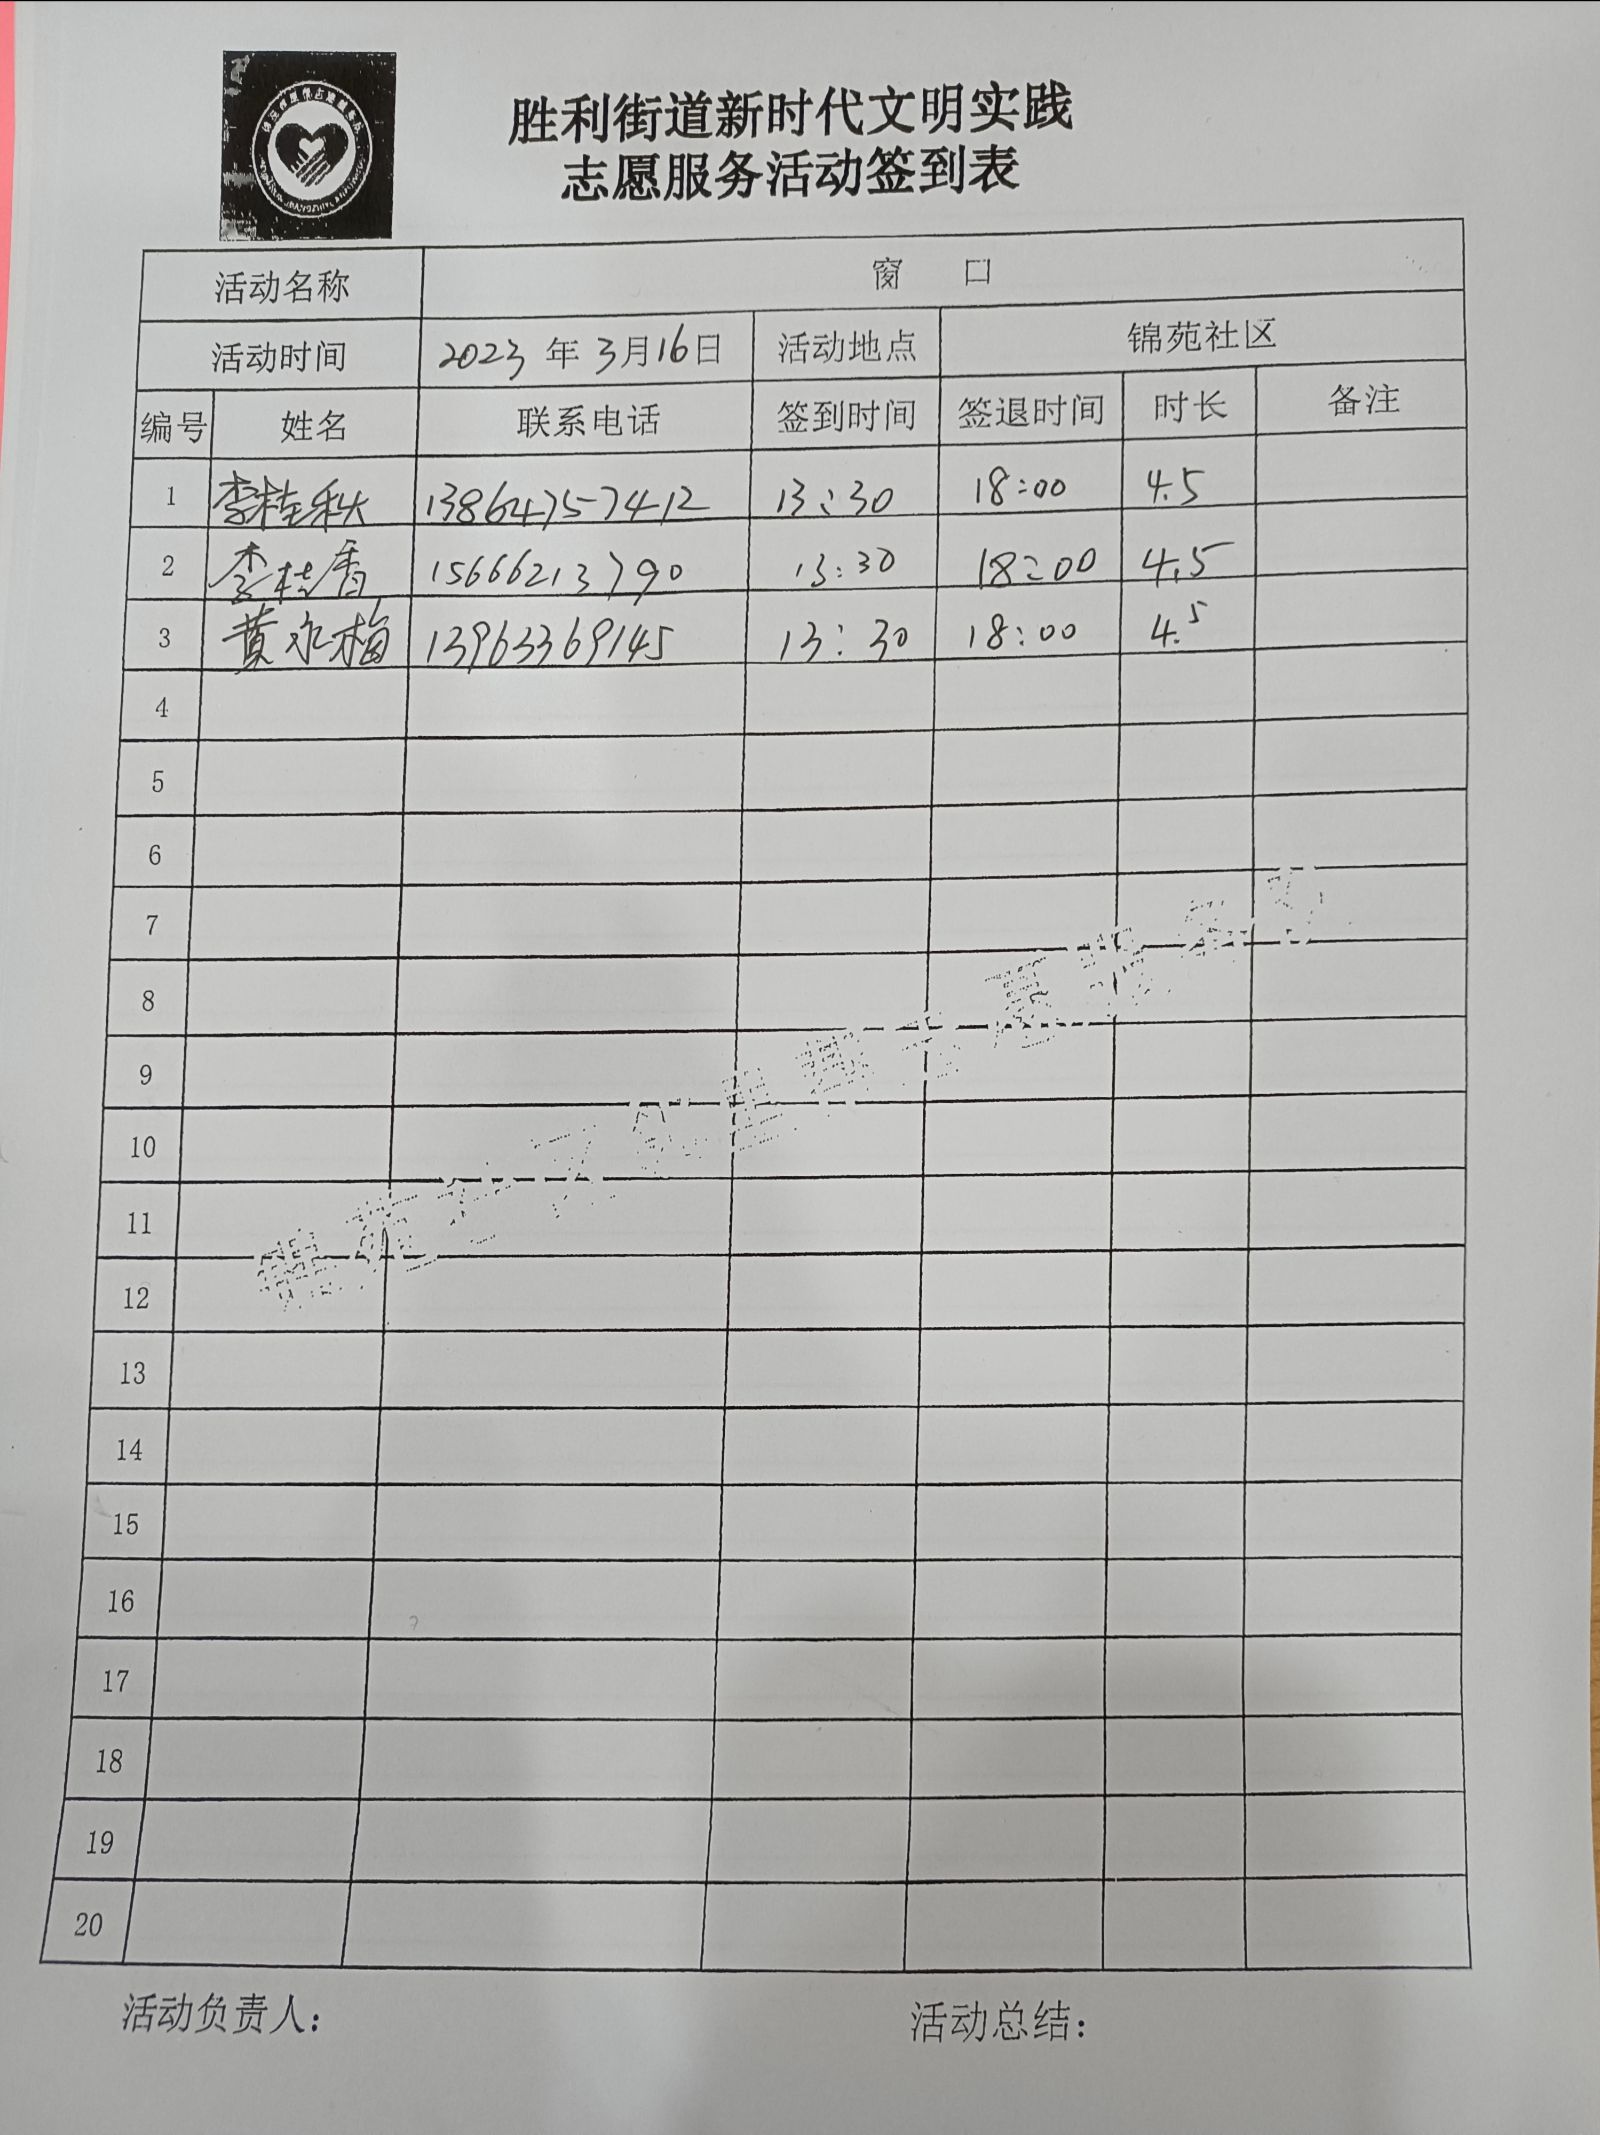 胜利街道新时代文明实践
志愿服务活动签到表
活动名称 窗 口
活动时间 2023 年 3月16日 活动地点 锦苑社区
编号 姓名 联系电话 签到时间 签退时间 时长 备注
1 李桂秋 13864757412 13:30 18:00 4.5
2 李桂香 15666213790 13:30 18:00 4.5
3 黄永梅 13963369145 13:30 18:00 4.5
4
5
6
7
8
9
10
11
12
13
14
15
16
17
18
19
20
活动负责人: 活动总结: